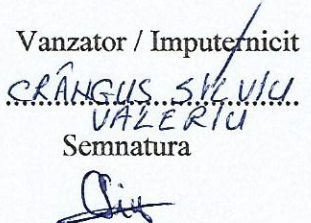 Vanzator / Imputernicit
CRÂNGUS SILVIU
VALERIU
Semnatura